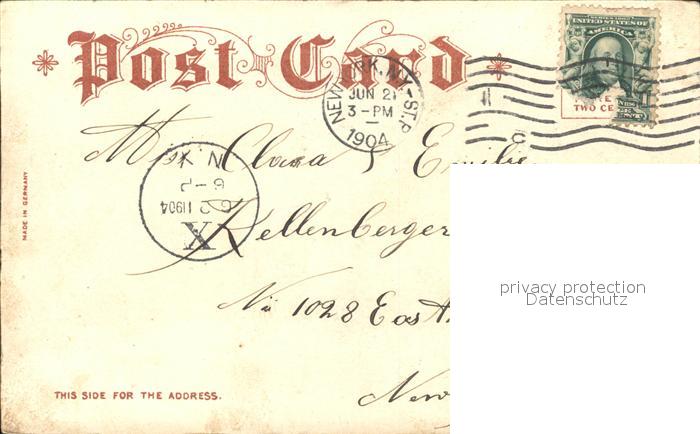 Post Card
SERIES 1902
UNITED STATES OF
AMERICA
NEW YORK, N.Y.-STA.P
JUN 21
3-PM
1904
TWO CE
Clara & Emilie
N.Y.
6-P
6 21 1904
X
Kellenberger
No 1028 East
New
MADE IN GERMANY
THIS SIDE FOR THE ADDRESS.
privacy protection
Datenschutz